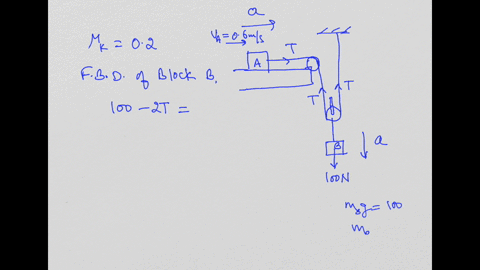 a
V_A = 0.6 m/s
μ_K = 0.2
A
T
F.B.D. of Block B.
T
T
100 - 2T =
B
a
100N
m_B g = 100
m_B